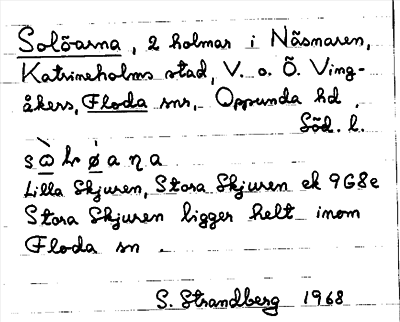 Solöarna, 2 holmar i Näsnaren,
Katrineholms stad, V. o. Ö. Ving-
åkers, Floda snr, Oppunda hd.
Söd. l.
Lilla Skjuren, Stora Skjuren ek 9G8e
Stora Skjuren ligger helt inom
Floda sn.
S. Strandberg 1968